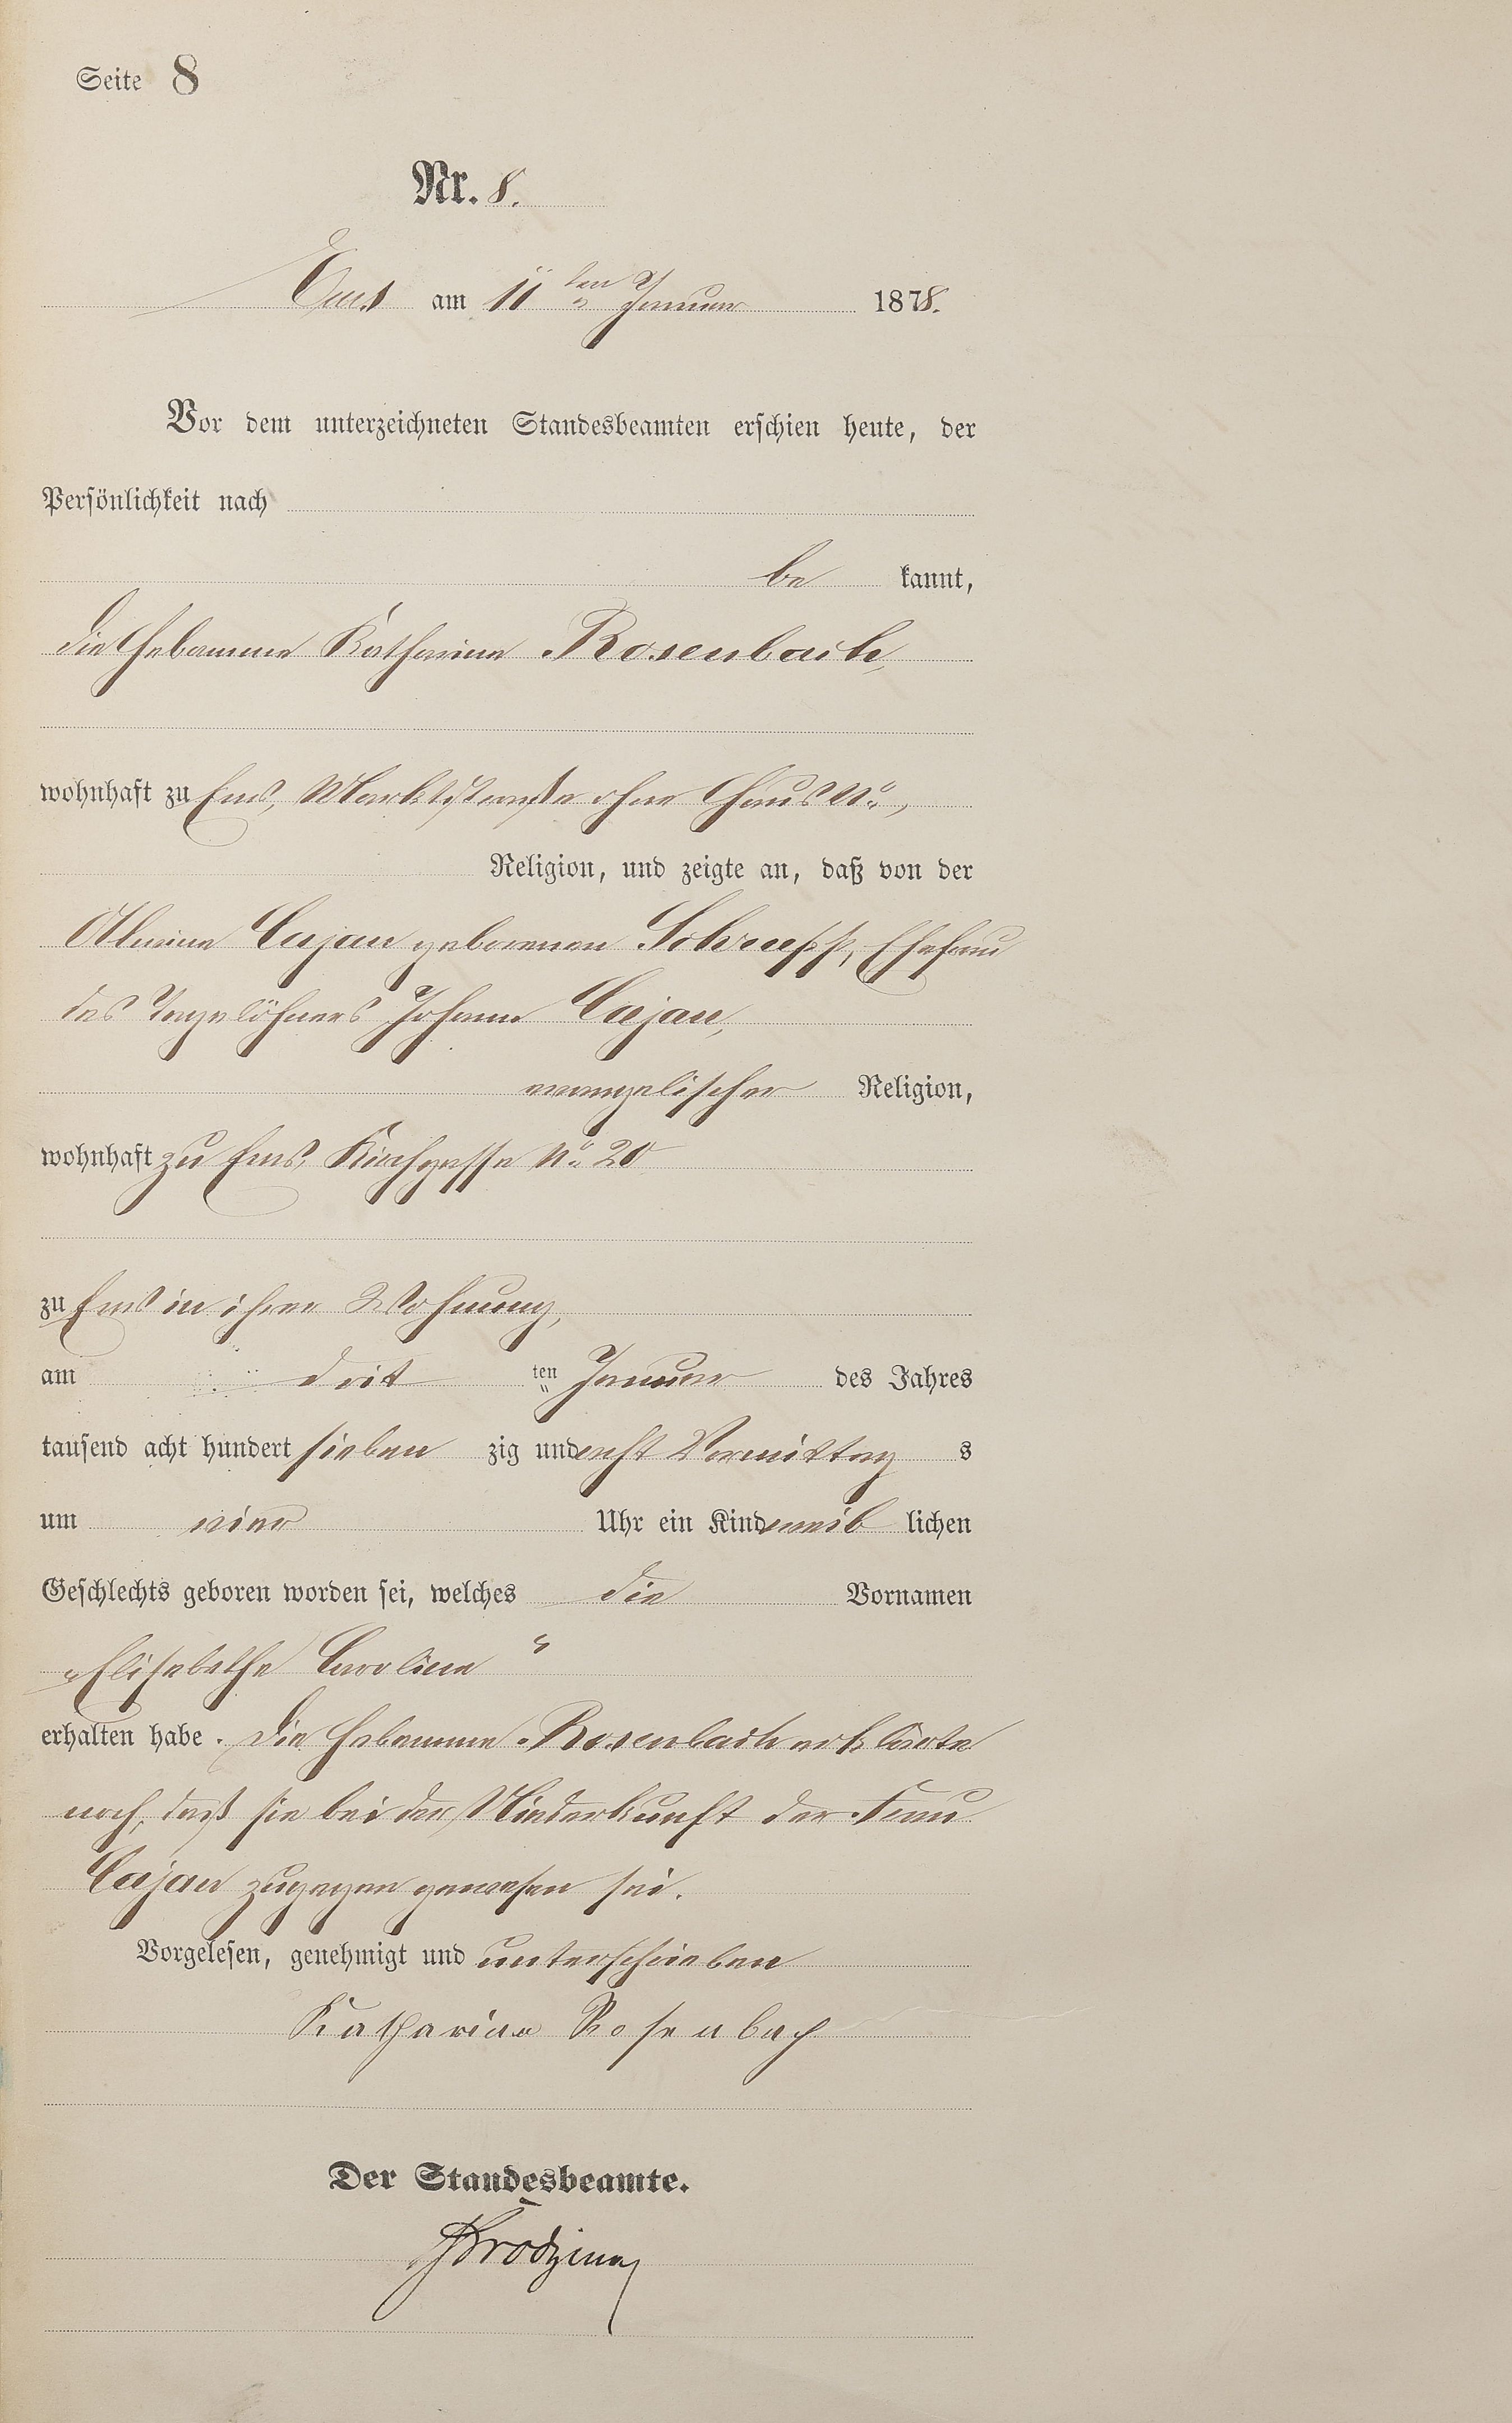 Seite 8
Nr. 8.
Ems am 11ten Januar 1878.
Vor dem unterzeichneten Standesbeamten erschien heute, der
Persönlichkeit nach
be kannt,
die Hebamme Katharina Rosenbach,
wohnhaft zu Ems, Marktstraße ohne Haus No,
Religion, und zeigte an, daß von der
Cajan geborenen Schrupp, Ehefrau
des Tagelöhners Johann Cajan,
evangelischer Religion,
wohnhaft zu Ems, Kirchgasse No 20
zu Ems in ihrer Wohnung,
am dritten Januar des Jahres
tausend acht hundert sieben zig und acht Vormittag s
um vier Uhr ein Kind weib lichen
Geschlechts geboren worden sei, welches die Vornamen
„Elisabethe Caroline“
erhalten habe. Die Hebamme Rosenbach erklärte
noch, daß sie bei der Niederkunft der Frau
Cajan zugegen gewesen sei.
Vorgelesen, genehmigt und unterschrieben
Katharina Rosenbach
Der Standesbeamte.